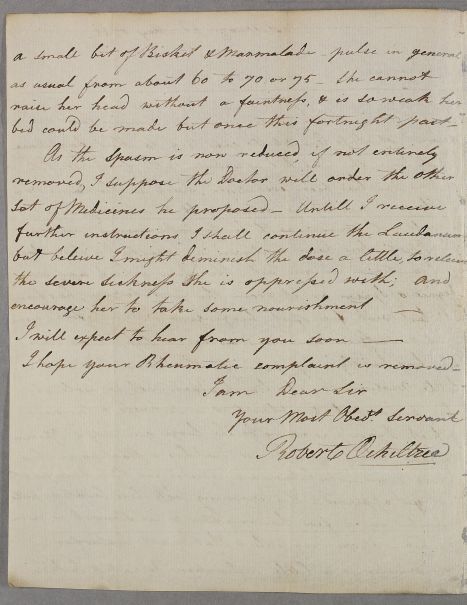 a small bit of Bisket & Marmalade - pulse in general
as usual from about 60 to 70 or 75 - She cannot
raise her head without a faintness, & is so weak her
bed could be made but once this fortnight past -
As the Spasm is now reduced, if not entirely
removed, I suppose the Doctor will order the other
Set of Medicines he proposed - Untill I receive
further instructions I shall continue the Laudanum
but beleive I might diminish the dose a little, to releive
the severe sickness she is oppressed with; and
encourage her to take some nourishment -
I will expect to hear from you soon -
I hope your Rheumatic complaint is removed -
I am Dear Sir
Your Most Obedt. Servant
Robert Ochiltree